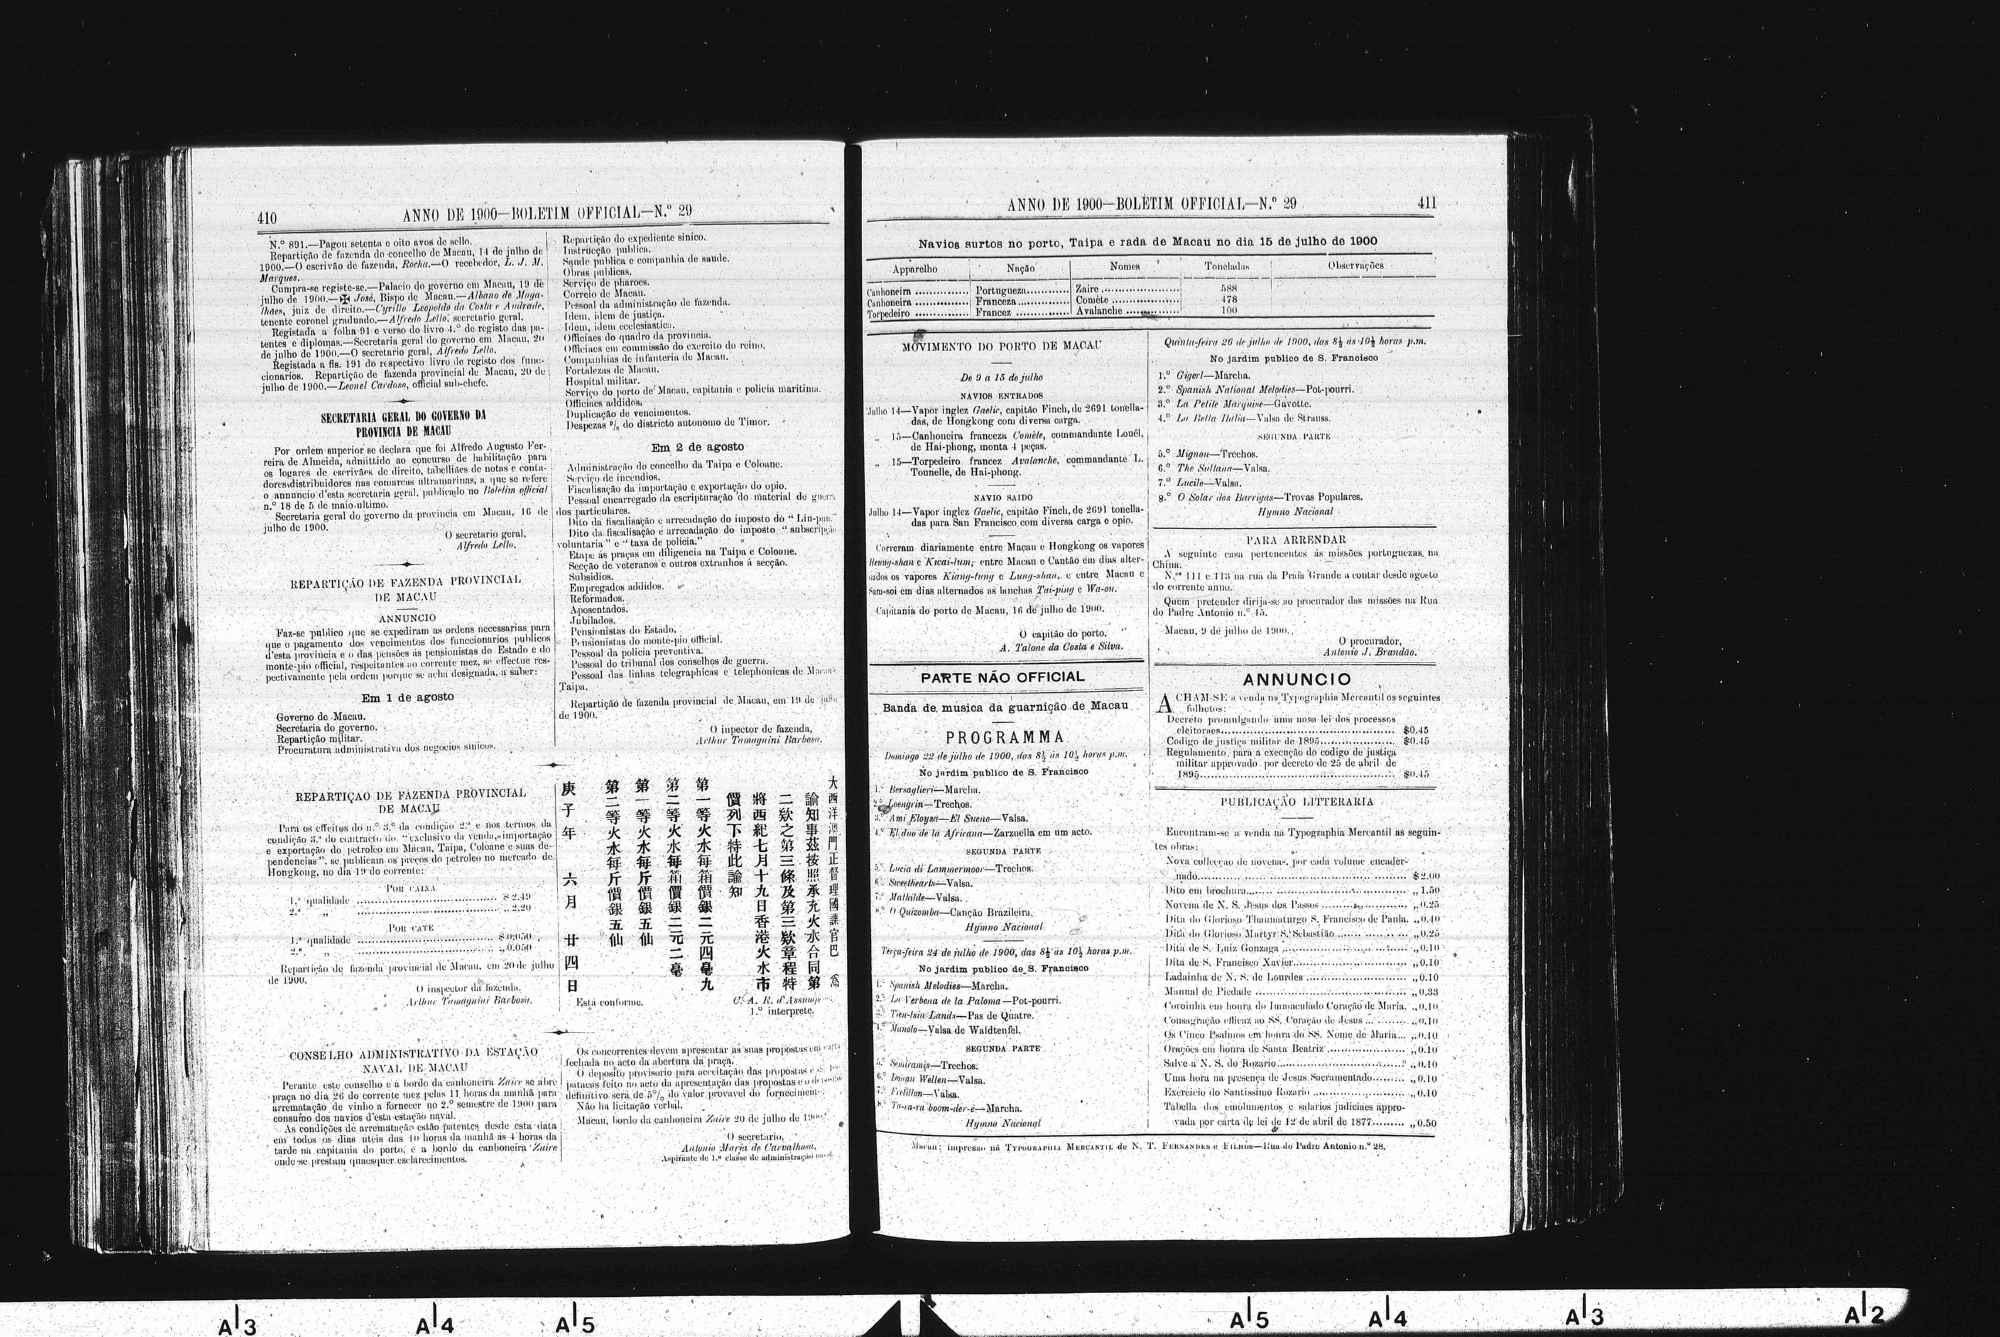 410
ANNO DE 1900—BOLETIM OFFICIAL—N.º 29
N.º 891.—Pagou setenta e oito avos de sello.
Repartição de fazenda do concelho de Macau, 14 de julho de
1900.—O escrivão de fazenda, Rocha.—O recebedor, L. J. M.
Marques.
Cumpra-se registe-se.—Palacio do governo em Macau, 19 de
julho de 1900.—✠ José, Bispo de Macau.—Albano de Maga-
lhães, juiz de direito.—Cyrillo Leopoldo da Costa e Andrade,
tenente coronel graduado.—Alfredo Lello, secretario geral.
Registada a folha 91 e verso do livro 4.º do registo das pa-
tentes e diplomas.—Secretaria geral do governo em Macau, 20
de julho de 1900.—O secretario geral, Alfredo Lello.
Registada a fls. 191 do respectivo livro de registo dos func-
cionarios. Repartição de fazenda provincial de Macau, 20 de
julho de 1900.—Leonel Cardoso, official sub-chefe.
SECRETARIA GERAL DO GOVERNO DA
PROVINCIA DE MACAU
Por ordem superior se declara que foi Alfredo Augusto Fer-
reira de Almeida, admittido ao concurso de habilitação para
os logares de escrivães de direito, tabelliães de notas e conta-
dores-distribuidores nas comarcas ultramarinas, a que se refere
o annuncio d'esta secretaria geral, publicado no Boletim official
n.º 18 de 5 de maio ultimo.
Secretaria geral do governo da provincia em Macau, 16 de
julho de 1900.
O secretario geral,
Alfredo Lello.
REPARTIÇÃO DE FAZENDA PROVINCIAL
DE MACAU
ANNUNCIO
Faz-se publico que se expediram as ordens necessarias para
que o pagamento dos vencimentos dos funccionarios publicos
d'esta provincia e o das pensões ás pensionistas do Estado e do
monte-pio official, respeitantes ao corrente mez, se effectue res-
pectivamente pela ordem porque se acha designada, a saber:
Em 1 de agosto
Governo de Macau.
Secretaria do governo.
Repartição militar.
Procuratura administrativa dos negocios sinicos.
Repartição do expediente sinico.
Instrucção publica.
Saude publica e companhia de saude.
Obras publicas.
Serviço de pharoes.
Correio de Macau.
Pessoal da administração de fazenda.
Idem, idem de justiça.
Idem, idem ecclesiastico.
Officiaes do quadro da provincia.
Officiaes em commissão do exercito do reino.
Companhias de infanteria de Macau.
Fortalezas de Macau.
Hospital militar.
Serviço do porto de Macau, capitania e policia maritima.
Officiaes addidos.
Duplicação de vencimentos.
Despezas %/o do districto autonomo de Timor.
Em 2 de agosto
Administração do concelho da Taipa e Coloane.
Serviço de incendios.
Fiscalisação da importação e exportação do opio.
Pessoal encarregado da escripturação do material de guerra
dos particulares.
Dito da fiscalisação e arrecadação do imposto do "Lin-pun."
Dito da fiscalisação e arrecadação do imposto "subscripção
voluntaria" e "taxa de policia."
Etape ás praças em diligencia na Taipa e Coloane.
Secção de veteranos e outros extranhos á secção.
Subsidios.
Empregados addidos.
Reformados.
Aposentados.
Jubilados.
Pensionistas do Estado.
Pensionistas do monte-pio official.
Pessoal da policia preventiva.
Pessoal do tribunal dos conselhos de guerra.
Pessoal das linhas telegraphicas e telephonicas de Macau-
Taipa.
Repartição de fazenda provincial de Macau, em 19 de julho
de 1900.
O inpector de fazenda,
Arthur Tamagnini Barbosa.
REPARTIÇÃO DE FAZENDA PROVINCIAL
DE MACAU
Para os effeitos do n.º 3.º da condição 2.ª e nos termos da
condição 3.ª do contracto do "exclusivo da venda, importação
e exportação do petroleo em Macau, Taipa, Coloane e suas de-
pendencias", se publicam os preços do petroleo no mercado de
Hongkong, no dia 19 do corrente:
POR CAIXA
1.ª qualidade ........ $ 2.49
2.ª „ ........ „ 2.20
POR CATE
1.ª qualidade ........ $ 0.050
2.ª „ ........ „ 0.050
Repartição de fazenda provincial de Macau, em 20 de julho
de 1900.
O inspector da fazenda,
Arthur Tamagnini Barbosa.
大西洋澳門正督理國課官巴 爲
諭知事茲按照承充火水合同第
二欵之第三條及第三欵章程特
將西紀七月十九日香港火水市
價列下特此諭知
第一等火水每箱價銀二元四毫九
第二等火水每箱價銀二元二毫
第一等火水每斤價銀五仙
第二等火水每斤價銀五仙
庚子年 六月 廿四日
Está conforme.
C. A. R. d'Assump
1.º interprete.
CONSELHO ADMINISTRATIVO DA ESTAÇÃO
NAVAL DE MACAU
Perante este conselho e a bordo da canhoneira Zaire se abre
praça no dia 26 do corrente mez pelas 11 horas da manhã para
arrematação de vinho a fornecer no 2.º semestre de 1900 para
consumo dos navios d'esta estação naval.
As condições de arrematação estão patentes desde esta data
em todos os dias uteis das 10 horas da manhã ás 4 horas da
tarde na capitania do porto, e a bordo da canhoneira Zaire
onde se prestam quaesquer esclarecimentos.
Os concorrentes devem apresentar as suas propostas em carta
fechada no acto da abertura da praça.
O deposito provisorio para acceitação das propostas
patacas feito no acto da apresentação das propostas e o deposito
definitivo será de 5% do valor provavel do fornecimento.
Não ha licitação verbal.
Macau, bordo da canhoneira Zaire 20 de julho de 1900.
O secretario,
Antonio Maria de Carvalhosa,
Aspirante de 1.ª classe de administração naval.
ANNO DE 1900—BOLETIM OFFICIAL—N.º 29
411
Navios surtos no porto, Taipa e rada de Macau no dia 15 de julho de 1900
Apparelho Nação Nomes Toneladas Observações
Canhoneira ........ Portugueza ........ Zaire ........ 588
Canhoneira ........ Franceza ........ Comète ........ 478
Torpedeiro ........ Francez ........ Avalanche ........ 100
MOVIMENTO DO PORTO DE MACAU
De 9 a 15 de julho
NAVIOS ENTRADOS
Julho 14—Vapor inglez Gaelic, capitão Finch, de 2691 tonella-
das, de Hongkong com diversa carga.
„ 15—Canhoneira franceza Comète, commandante Louêl,
de Hai-phong, monta 4 peças.
„ 15—Torpedeiro francez Avalanche, commandante L.
Tounelle, de Hai-phong.
NAVIO SAIDO
Julho 14—Vapor inglez Gaelic, capitão Finch, de 2691 tonella-
das para San Francisco com diversa carga e opio.
Correram diariamente entre Macau e Hongkong os vapores
Heung-shan e Kwai-lum; entre Macau e Cantão em dias alter-
nados os vapores Kiang-tung e Lung-shan, e entre Macau e
Sam-soi em dias alternados as lanchas Tai-ping e Wa-on.
Capitania do porto de Macau, 16 de julho de 1900.
O capitão do porto,
A. Talone da Costa e Silva.
PARTE NÃO OFFICIAL
Banda de musica da guarnição de Macau
PROGRAMMA
Domingo 22 de julho de 1900, das 8½ ás 10½ horas p.m.
No jardim publico de S. Francisco
1.º Bersaglieri—Marcha.
2.º Loengrin—Trechos.
3.º Ami Eloysa—El Sueno—Valsa.
4.º El duo de la Africana—Zarzuella em um acto.
SEGUNDA PARTE
5.º Lucia di Lammermoor—Trechos.
6.º Sweethearts—Valsa.
7.º Mathilde—Valsa.
8.º O Quizomba—Canção Brazileira.
Hymno Nacional
Terça-feira 24 de julho de 1900, das 8½ ás 10½ horas p.m.
No jardim publico de S. Francisco
1.º Spanish Melodies—Marcha.
2.º La Verbena de la Paloma—Pot-pourri.
3.º Tien-tsin Lands—Pas de Quatre.
4.º Manolo—Valsa de Waldtenfel.
SEGUNDA PARTE
5.º Semiramis—Trechos.
6.º Donan Wellen—Valsa.
7.º Valsa.
8.º Ta-ra-ra boom-der-é—Marcha.
Hymno Nacional
Quinta-feira 26 de julho de 1900, das 8½ ás 10½ horas p.m.
No jardim publico de S. Francisco
1.º Gigerl—Marcha.
2.º Spanish National Melodies—Pot-pourri.
3.º La Petite Marquise—Gavotte.
4.º La Bella Italia—Valsa de Strauss.
SEGUNDA PARTE
5.º Mignon—Trechos.
6.º The Sultana—Valsa.
7.º Lucile—Valsa.
8.º O Solar dos Barrigas—Trovas Populares.
Hymno Nacional
PARA ARRENDAR
A seguinte casa pertencentes ás missões portuguezas na
China.
N.ºs 111 e 113 na rua da Praia Grande a contar desde agosto
do corrente anno.
Quem pretender dirija-se ao procurador das missões na Rua
do Padre Antonio n.º 15.
Macau, 9 de julho de 1900.
O procurador,
Antonio J. Brandão.
ANNUNCIO
ACHAM-SE a venda na Typographia Mercantil os seguintes
folhetos:
Decreto promulgando uma nova lei dos processos
eleitoraes ........ $0.45
Codigo de justiça militar de 1895 ........ $0.45
Regulamento para a execução do codigo de justiça
militar approvado por decreto de 25 de abril de
1895 ........ $0.45
PUBLICAÇÃO LITTERARIA
Encontram-se a venda na Typographia Mercantil as seguin-
tes obras:
Nova collecção de novenas, por cada volume encader-
nado ........ $2.00
Dito em brochura ........ „1.50
Novena de N. S. Jesus dos Passos ........ „0.25
Dita do Glorioso Thaumaturgo S. Francisco de Paula. „0.40
Dita do Glorioso Martyr S. Sebastião ........ „0.25
Dita de S. Luiz Gonzaga ........ „0.10
Dita de S. Francisco Xavier ........ „0.10
Ladainha de N. S. de Lourdes ........ „0.10
Manual de Piedade ........ „0.33
Coroinha em honra do Immaculado Coração de Maria. „0.10
Consagração efficaz ao SS. Coração de Jesus ........ „0.10
Os Cinco Psalmos em honra do SS. Nome de Maria... „0.10
Orações em honra de Santa Beatriz ........ „0.10
Salve a N. S. do Rozario ........ „0.10
Uma hora na presença de Jesus Sacramentado ........ „0.10
Exercicio do Santissimo Rozario ........ „0.10
Tabella dos emolumentos e salarios judiciaes appro-
vada por carta de lei de 12 de abril de 1877 ........ „0.50
Macau: impresso na TYPOGRAPHIA MERCANTIL de N. T. FERNANDES e FILHOS—Rua do Padre Antonio n.º 28.
A3 A4 A5 A5 A4 A3 A2